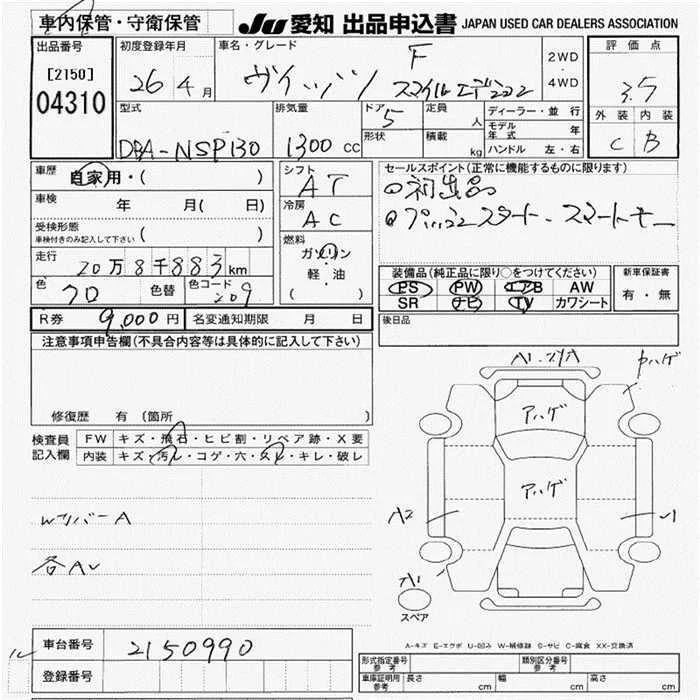 車内保管・守衛保管
JU 愛知 出品申込書 JAPAN USED CAR DEALERS ASSOCIATION
出品番号
[2150]
04310
初度登録年月
26 4 月
車名・グレード
F
ヴィッツ スマイルエディション
2WD
・
4WD
評価点
3.5
外装 内装
C B
型式
DBA-NSP130
排気量
1300 cc
ドア
5
形状
定員
人
積載
kg
ディーラー・並行
モデル年式 年
ハンドル 左・右
車歴
自家用・( )
車検 年 月( 日)
受検形態
車検付きのみ記入して下さい ( )
走行
20万8千883 km
色 クロ 色替 色コード 209
シフト
AT
冷房
AC
燃料
ガソリン
軽・油
( )
セールスポイント(正常に機能するものに限ります)
○初出品
○プッシュスタート、スマートキー
装備品(純正品に限り○をつけてください)
PS PW エアB AW
SR ナビ TV カワシート
新車保証書
有・無
R券 9,000円 名変通知期限 月 日
後日品
注意事項申告欄(不具合内容等は具体的に記入して下さい)
修復歴 有 〔箇所 〕
検査員記入欄
FW キズ・飛石・ヒビ割・リペア跡・X要
内装 キズ・汚れ・コゲ・穴・スレ・キレ・破レ
WリバーA
各AU
A1
ハゲ
アハゲ
アハゲ
A2
A1
スペア
車台番号 2150990
登録番号
A-キズ E-エクボ U-凹み W-補修跡 S-サビ C-腐食 XX-交換済
形式指定番号 参考
類別区分番号 参考
車庫証明用 参考 長さ cm 幅 cm 高さ cm